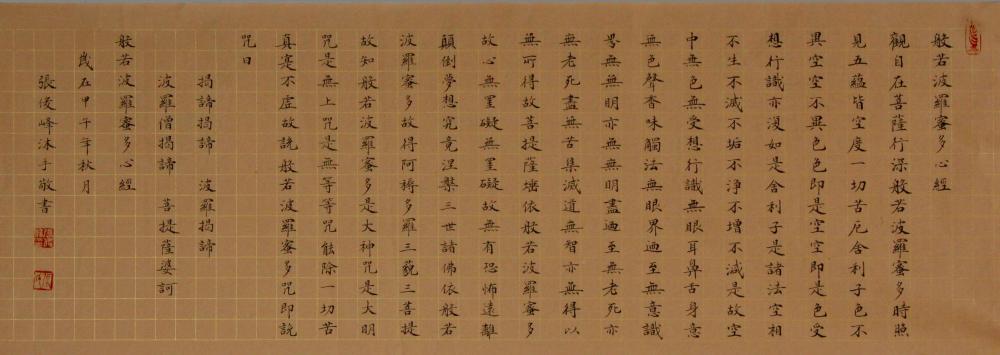 般若波羅蜜多心經
觀自在菩薩行深般若波羅蜜多時照
見五蘊皆空度一切苦厄舍利子色不
異空空不異色色即是空空即是色受
想行識亦復如是舍利子是諸法空相
不生不滅不垢不淨不增不減是故空
中無色無受想行識無眼耳鼻舌身意
無色聲香味觸法無眼界乃至無意識
界無無明亦無無明盡乃至無老死亦
無老死盡無苦集滅道無智亦無得以
無所得故菩提薩埵依般若波羅蜜多
故心無罣礙無罣礙故無有恐怖遠離
顛倒夢想究竟涅槃三世諸佛依般若
波羅蜜多故得阿耨多羅三藐三菩提
故知般若波羅蜜多是大神咒是大明
咒是無上咒是無等等咒能除一切苦
真寔不虛故說般若波羅蜜多咒即說
咒曰
揭諦揭諦 波羅揭諦
波羅僧揭諦 菩提薩婆訶
般若波羅蜜多心經
歲在甲午年秋月
張俊峰沐手敬書